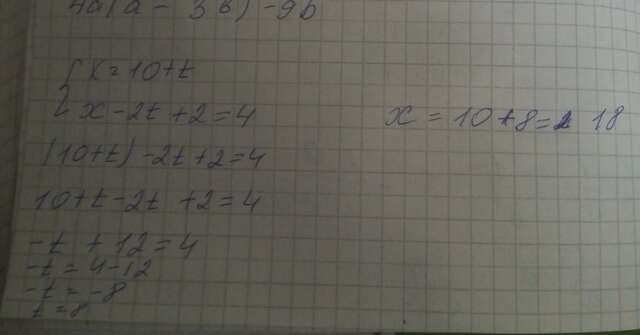 4a(a - 3b) - 9b
{ x = 10+t
x - 2t + 2 = 4
(10+t) - 2t + 2 = 4
10 + t - 2t + 2 = 4
-t + 12 = 4
-t = 4 - 12
-t = -8
t = 8
x = 10 + 8 = 18